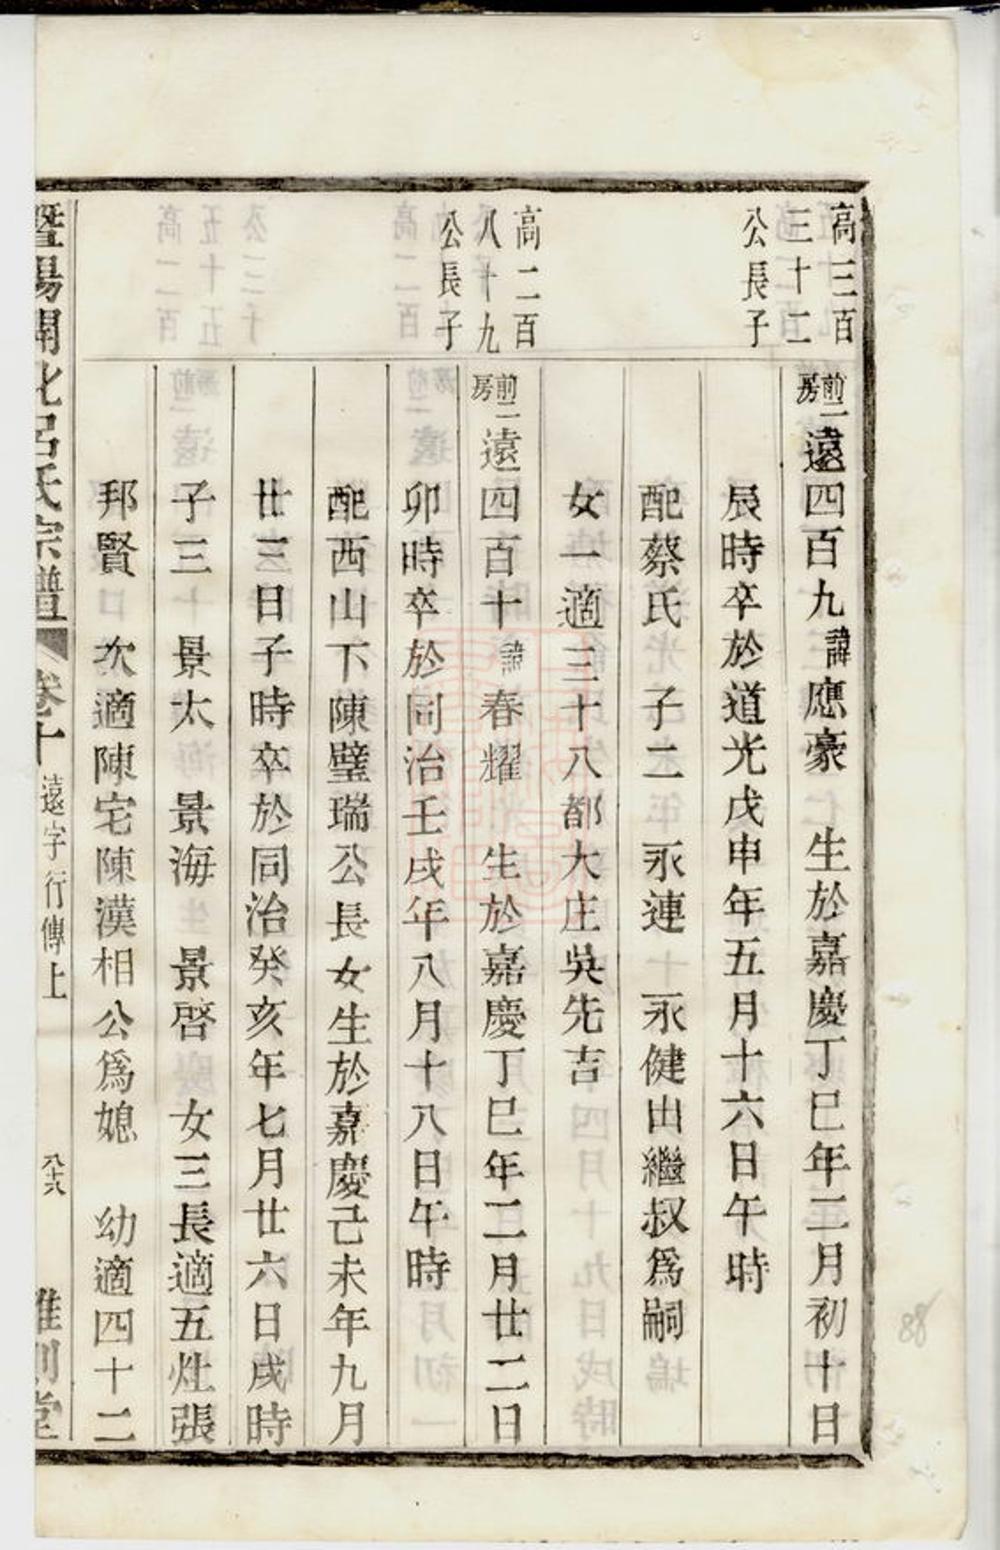 高三百
三十二
公長子
前二房遠四百九諱應豪 生於嘉慶丁巳年二月初十日
辰時卒於道光戊申年五月十六日午時
配蔡氏 子二 永連 永健出繼叔爲嗣
女一適三十八都大庄吳先吉
高二百
八十九
公長子
前二房遠四百十諱春耀 生於嘉慶丁巳年二月廿二日
卯時卒於同治壬戌年八月十八日午時
配西山下陳璧瑞公長女生於嘉慶己未年九月
廿三日子時卒於同治癸亥年七月廿六日戌時
子三 景太 景海 景啓 女三長適五灶張
邦賢 次適陳宅陳漢相公爲媳 幼適四十二
暨陽開化呂氏宗譜 卷十 遠字行傳上 八十六 堂